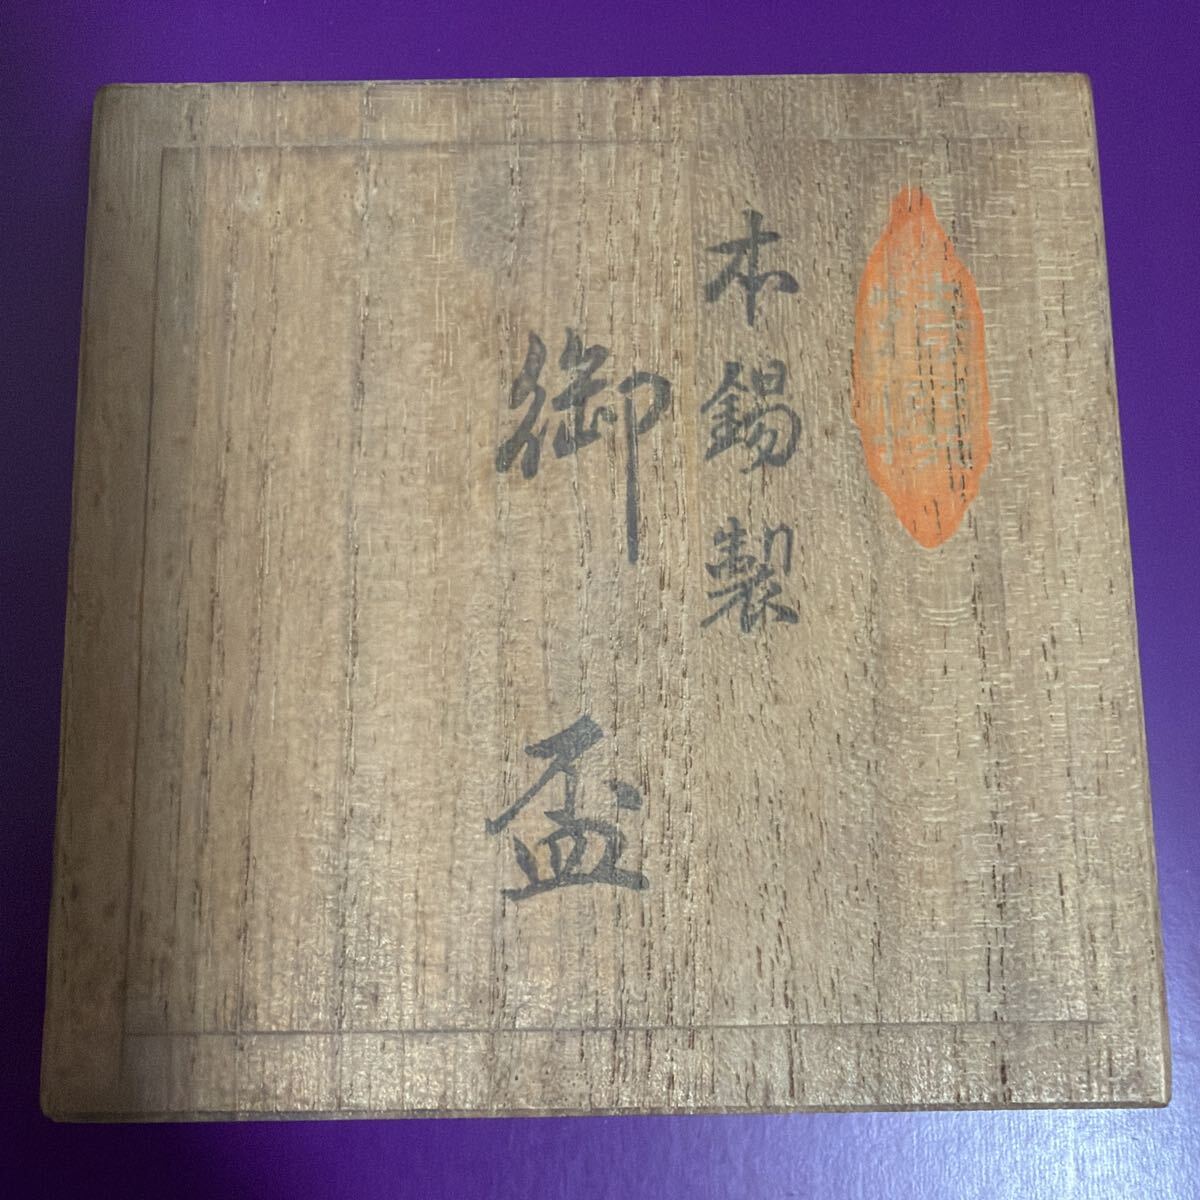 本錫製
御盃